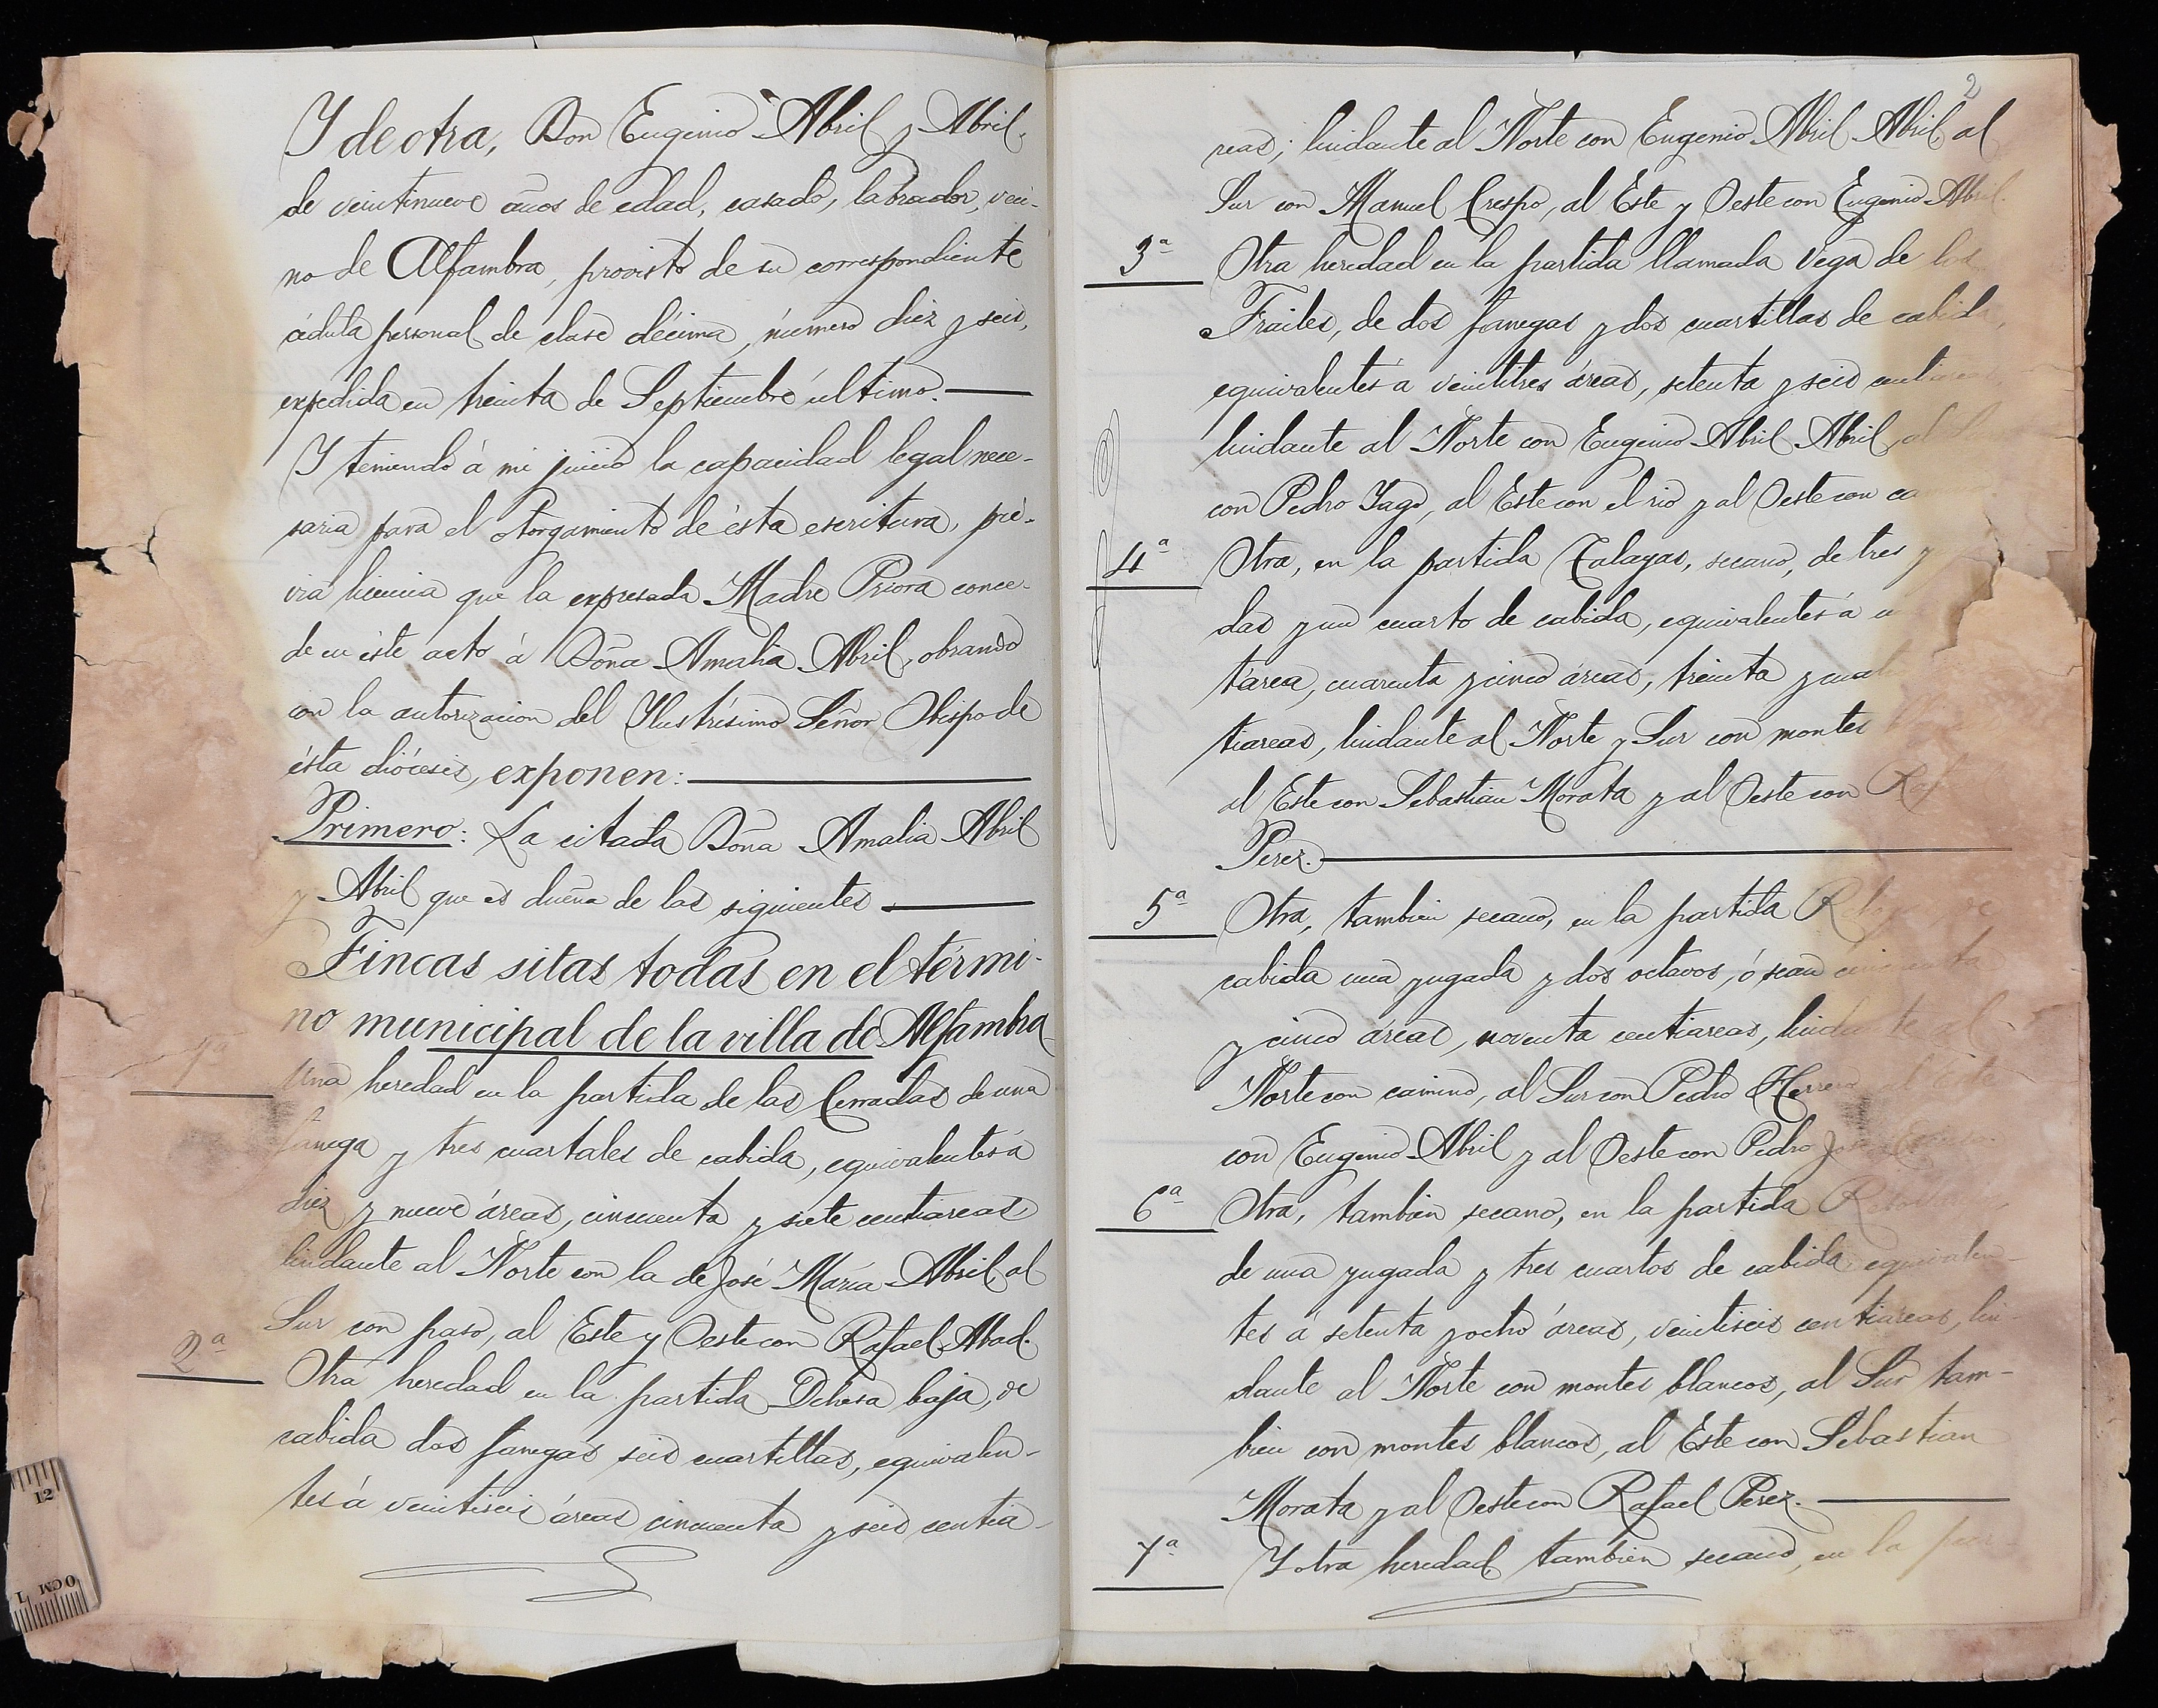 Y de otra, Don Eugenio Abril y Abril,
de veintinueve años de edad, casado, labrador, veci-
no de Alfambra, provisto de su correspondiente
cédula personal de clase décima, número diez y seis,
expedida en treinta de Septiembre último.
Y teniendo á mi juicio la capacidad legal nece-
saria para el otorgamiento de ésta escritura, pré-
via licencia que la expresada Madre Priora conce-
de en éste acto á Doña Amalia Abril, obrando
con la autorizacion del Ylustrísimo Señor Obispo de
ésta diócesis, exponen:
Primero: La citada Doña Amalia Abril
y Abril que es dueña de las siguientes
Fincas sitas todas en el térmi-
no municipal de la villa de Alfambra
1ª Una heredad en la partida de las Cerradas de una
fanega y tres cuartales de cabida, equivalentes á
diez y nueve áreas, cincuenta y siete centiareas
lindante al Norte con la de José María Abril al
Sur con paso, al Este y Oeste con Rafael Abad.
2ª Otra heredad en la partida Dehesa baja, de
cabida dos fanegas seis cuartillas, equivalen-
tes á veintiseis áreas cincuenta y seis centia-
2
reas; lindante al Norte con Eugenio Abril Abril, al
Sur con Manuel Crespo, al Este y Oeste con Eugenio Abril.
3ª Otra heredad en la partida llamada Vega de los
Frailes, de dos fanegas y dos cuartillas de cabida,
equivalentes á veintitres áreas, setenta y seis centiareas
lindante al Norte con Eugenio Abril Abril, al
con Pedro Yago, al Este con el rio y al Oeste con
4ª Otra, en la partida Talayas, secano, de tres y
das y un cuarto de cabida, equivalentes á
tárea, cuarenta y cinco áreas, treinta y
tiareas, lindante al Norte y Sur con montes
al Este con Sebastian Morata y al Oeste con
Perez.
5ª Otra, tambien secano, en la partida de
cabida una yugada y dos octavos, ó sean cincuenta
y cinco áreas, noventa centiareas, lindante al
Norte con camino, al Sur con Pedro Herrero al Este
con Eugenio Abril y al Oeste con Pedro José
6ª Otra, tambien secano, en la partida
de una yugada y tres cuartos de cabida equivalen-
tes á setenta y ocho áreas, veintiseis centiareas, lin-
dante al Norte con montes blancos, al Sur tam-
bien con montes blancos, al Este con Sebastian
Morata y al Oeste con Rafael Perez.
7ª Y otra heredad tambien secano, en la par-